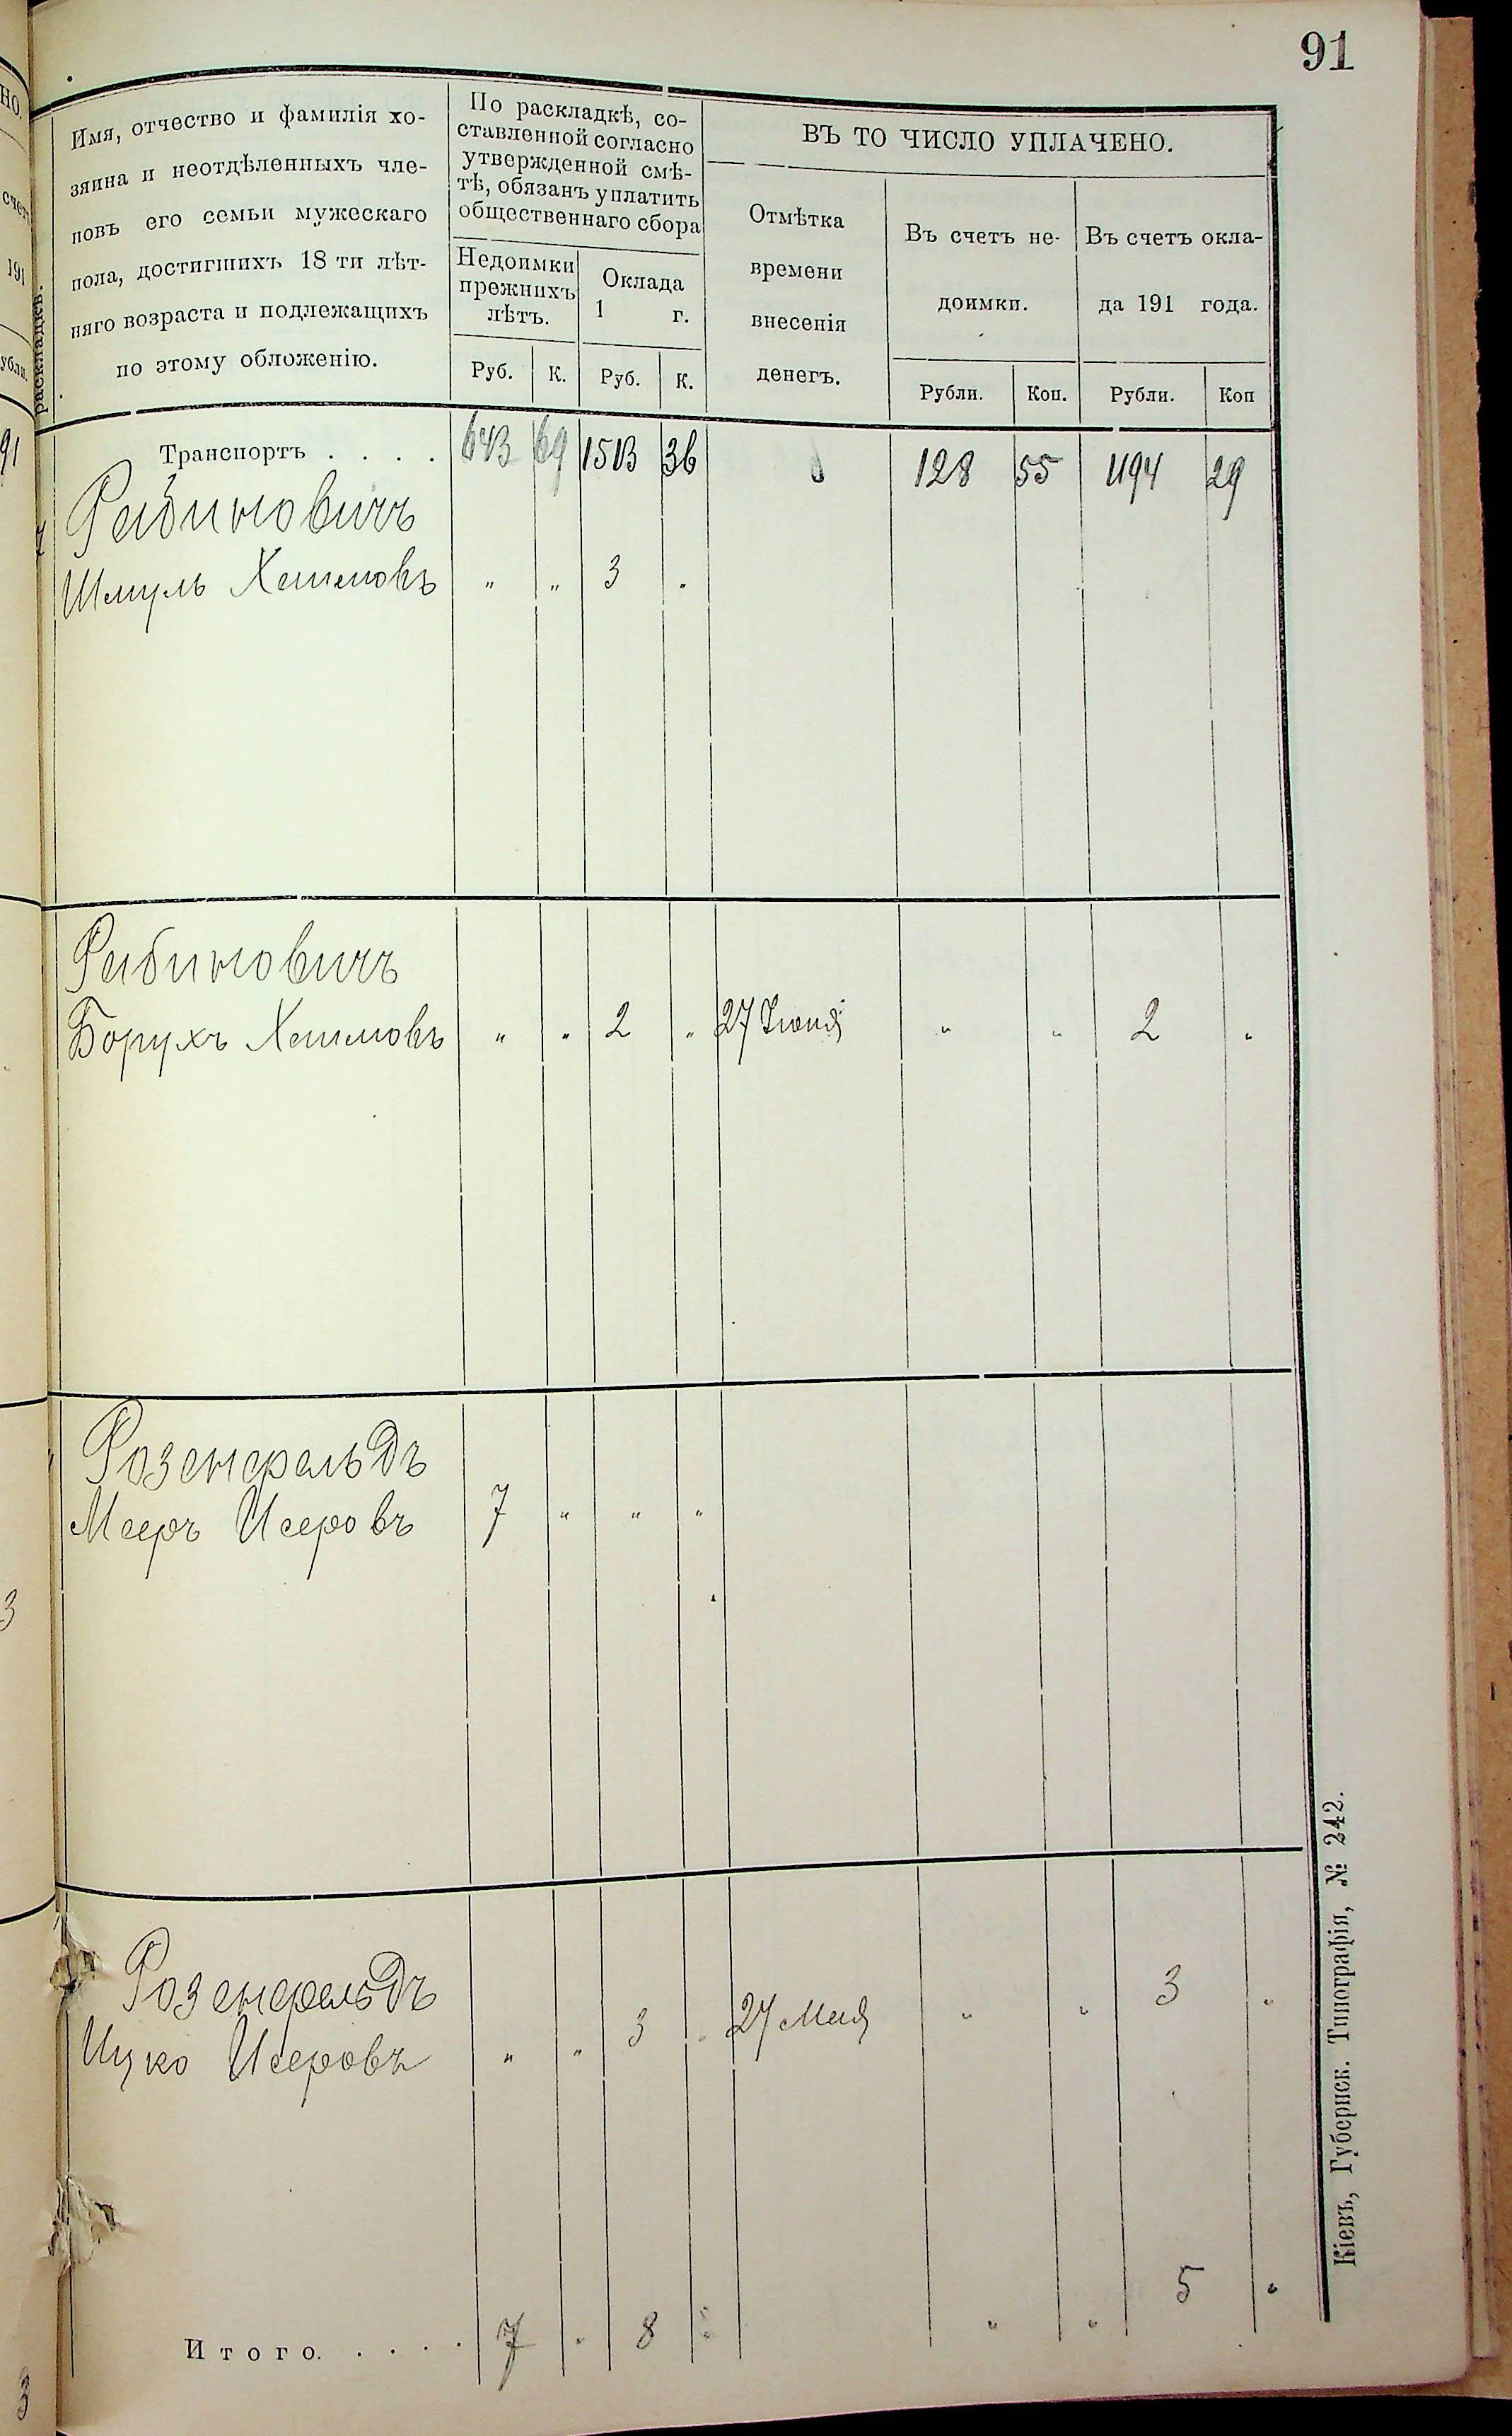 91
Имя, отчество и фамилія хо-
зяина и неотдѣленныхъ чле-
новъ его семьи мужескаго
пола, достигшихъ 18 ти лѣт-
няго возраста и подлежащихъ
по этому обложенію.
По раскладкѣ, со-
ставленной согласно
утвержденной смѣ-
тѣ, обязанъ уплатить
общественнаго сбора
Недоимки
прежнихъ
лѣтъ.
Оклада
1 г.
Руб. К. Руб. К.
ВЪ ТО ЧИСЛО УПЛАЧЕНО.
Отмѣтка
времени
внесенія
денегъ.
Въ счетъ не-
доимки.
Въ счетъ окла-
да 191 года.
Рубли. Коп. Рубли. Коп
Транспортъ . . . . 643 69 1513 36 128 55 1194 29
Рабиновичъ
Шмуль Хаимовъ " " 3 "
Рабиновичъ
Борухъ Хаимовъ " " 2 " 27 Іюня " " 2 "
Розенфельдъ
Мееръ Исеровъ 7 " " "
Розенфельдъ
Ицко Исеровъ " " 3 " 27 Мая " " 3 "
Итого. . . . . 7 " 8 " " " 5 "
Кіевъ, Губернск. Типографія, № 242.